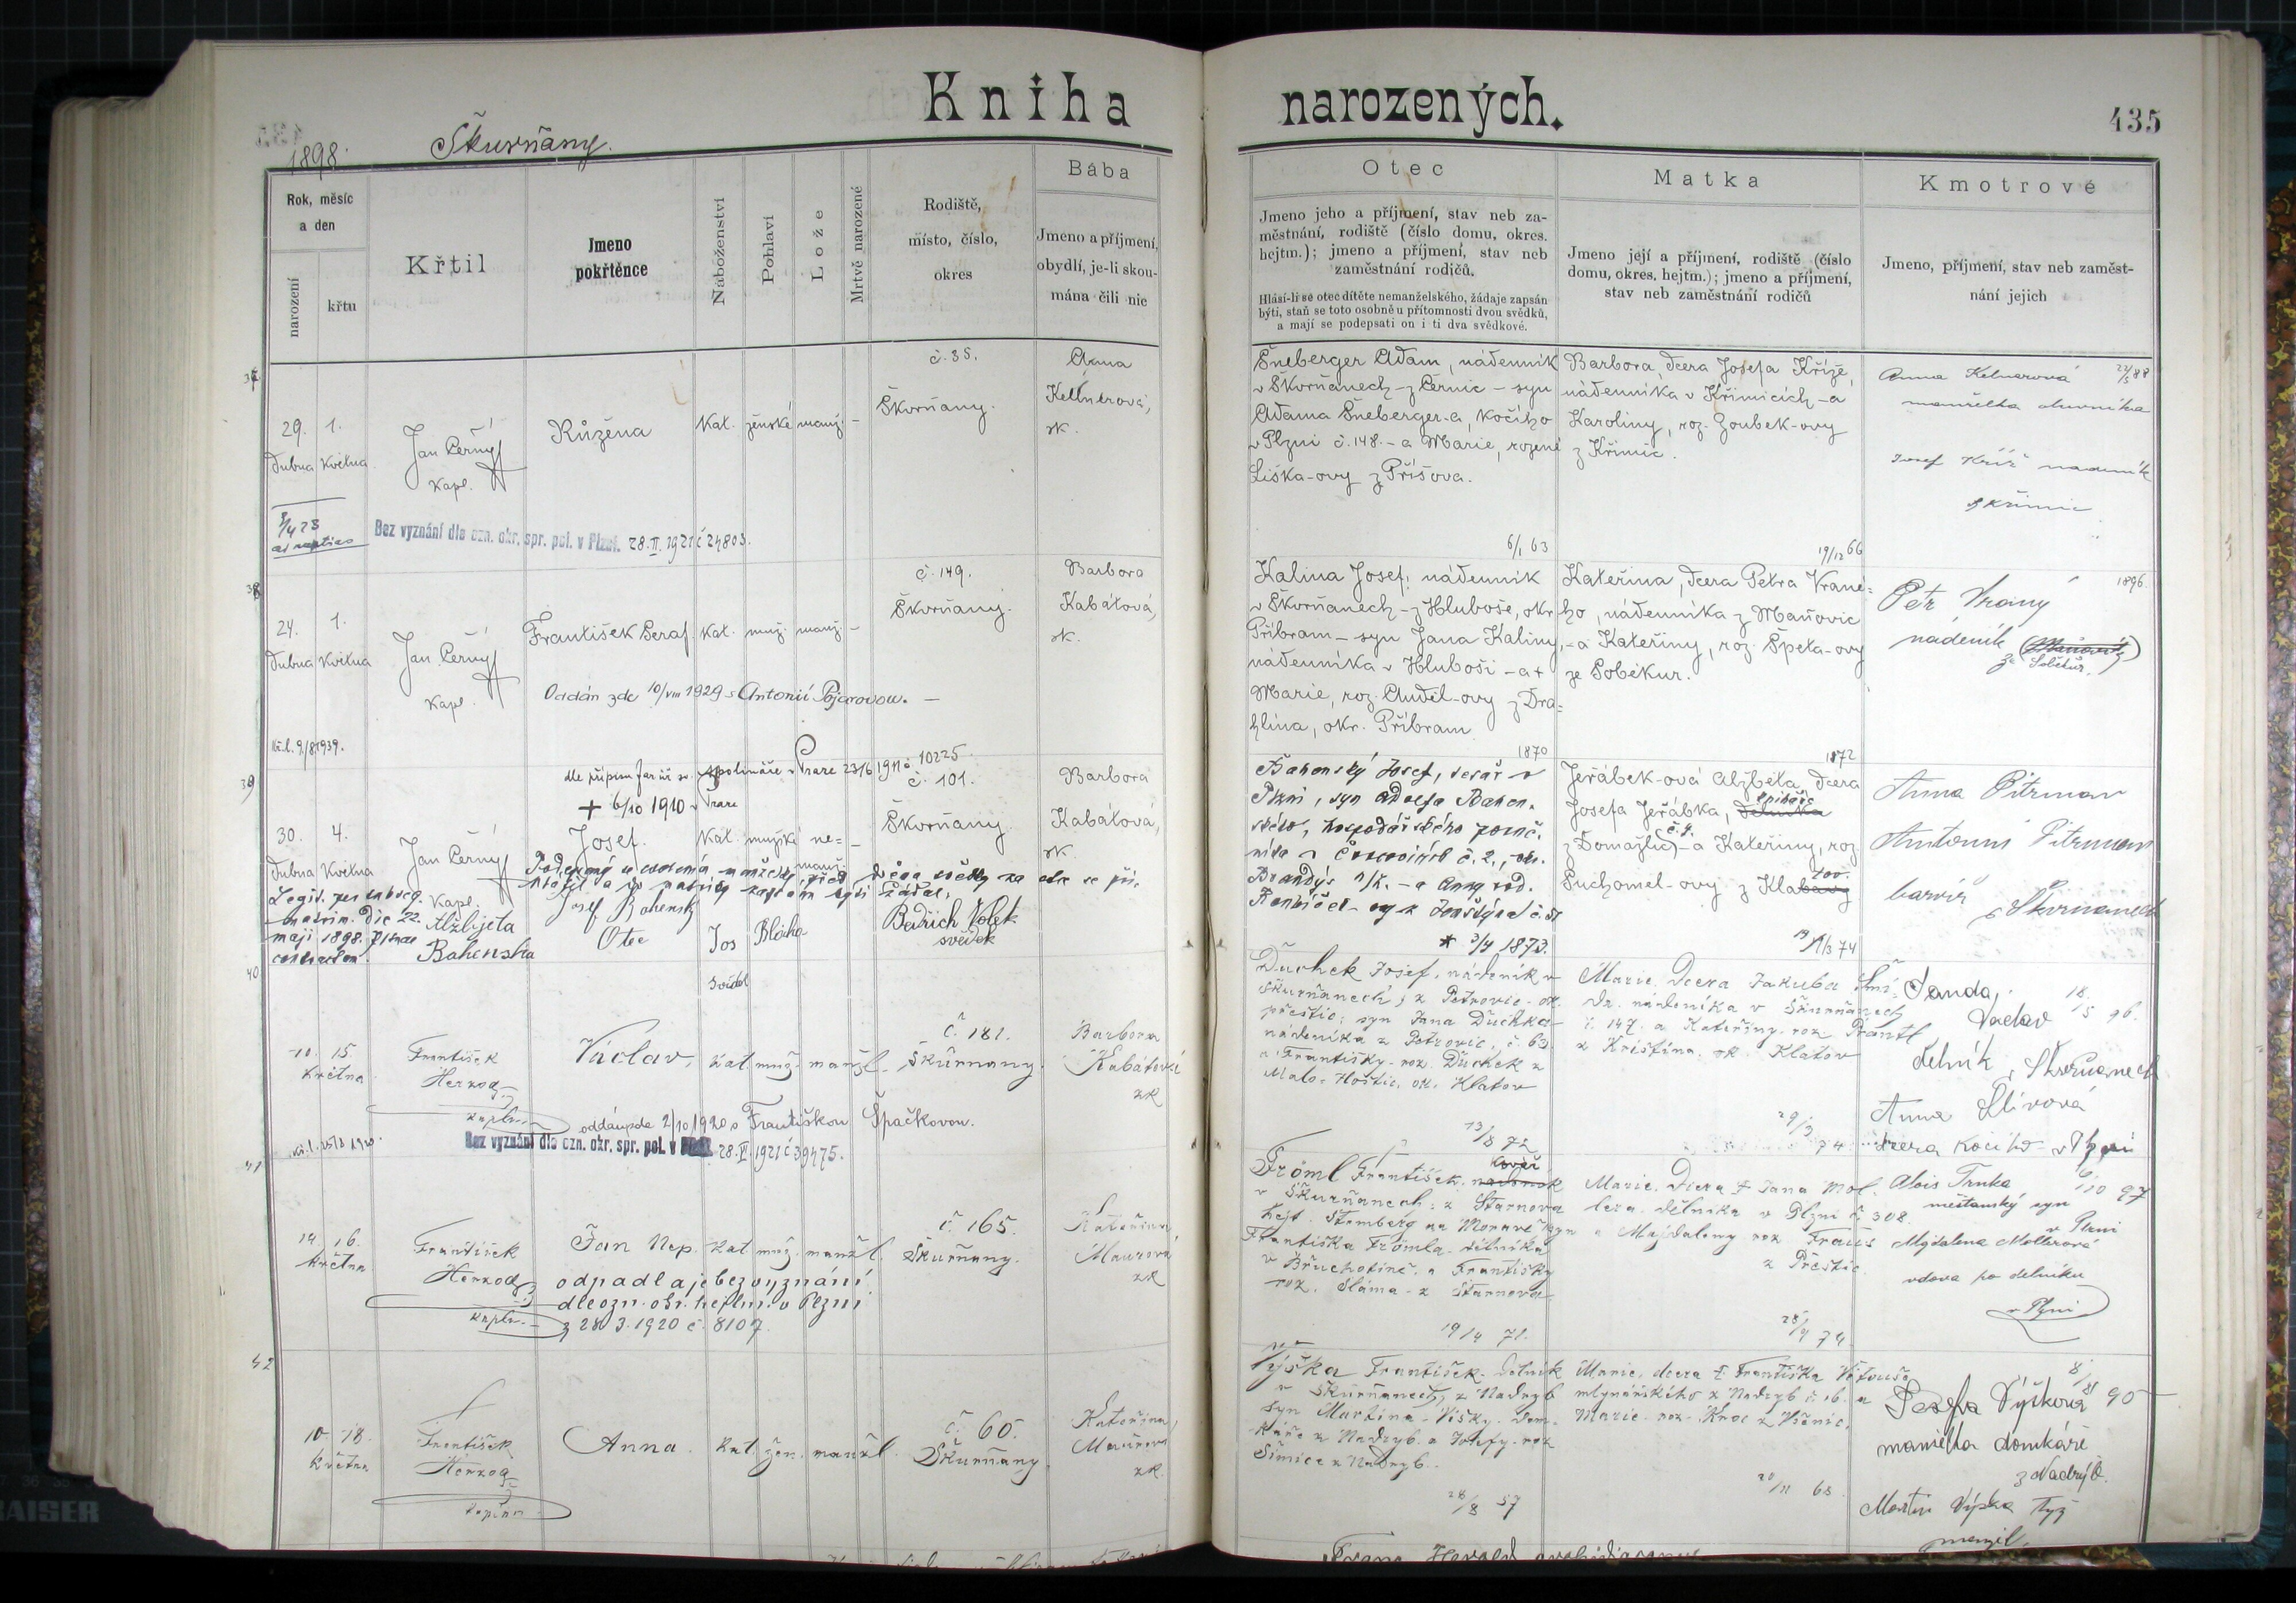 Kniha narozených.
435
1898.
Škurňany.
Rok, měsíc
a den
narození
křtu
Křtil
Jmeno
pokřtěnce
Náboženství
Pohlaví
Lože
Mrtvě narozené
Rodiště,
místo, číslo,
okres
Bába
Jmeno a příjmení,
obydlí, je-li skou-
mána čili nic
Otec
Jmeno jeho a příjmení, stav neb za-
městnání, rodiště (číslo domu, okres.
hejtm.); jmeno a příjmení, stav neb
zaměstnání rodičů.
Hlásí-li se otec dítěte nemanželského, žádaje zapsán
býti, staň se toto osobně u přítomnosti dvou svědků,
a mají se podepsati on i ti dva svědkové.
Matka
Jmeno její a příjmení, rodiště (číslo
domu, okres, hejtm.); jmeno a příjmení,
stav neb zaměstnání rodičů
Kmotrové
Jmeno, příjmení, stav neb zaměst-
nání jejich
29. 1.
Dubna Května
Jan Černý
Kapl.
Růžena
Kat. ženské manž. –
č. 35.
Škvrňany.
Anna
Kellnerová,
zk.
Bez vyznání dle ozn. okr. spr. pol. v Plzni. 28.II.1921 č 24803.
Šneberger Adam, nádenník
v Škvrňanech – z Černic – syn
Adama Šneberger-a, kočího
v Plzni č. 148. – a Marie, rozené
Liška-ovy z Příšova.
6/1 63
Barbora, dcera Josefa Kříže,
nádenníka v Křimicích – a
Karoliny, roz. Zoubek-ovy
z Křimic.
19/12 66
Anna Kelnerová
manželka
Josef Kříž nadeník
z Křimic
38
24. 1.
Dubna Května
Jan Černý
Kapl.
František Seraf. Kat. muž. manž. –
Oddán zde 10/VIII 1929 s Antonií Pojarovou. –
č. 149.
Škvrňany.
Barbora
Kabátová,
zk.
Kalina Josef, nádenník
v Škvrňanech – z Hluboše, okr.
Příbram – syn Jana Kaliny,
nádenníka v Hluboši – a +
Marie, roz. Anděl-ovy z Dra-
hlína, okr. Příbram
1870
Kateřina, dcera Petra Vrané-
ho, nádenníka z Maňovic
– a Kateřiny, roz. Špeta-ovy
ze Soběkur.
1872
1896.
Petr Vraný
nádeník
ze Soběkur.
39
30. 4.
Dubna Května
Jan Černý
Kapl.
dle přípisu far. úř. sv. Apolináře v Praze 23/6 1911 č. 10225
+ 6/10 1910 v Praze
Josef. Kat. mužské ne-
manž.
č. 101.
Škvrňany
Barbora
Kabátová,
zk.
Legit. per subseq.
matrim. die 22.
maji 1898. Pilsnae
contractum.
Alžbjeta
Bahenska
Josef Bahenský
Otec
Jos Bláha
svědek
Bedřich Volek
svědek
Bahenský Josef, tesař v
Plzni, syn Adolfa Bahen-
ského, hospodářského pomoc-
* 3/4 1873.
Jeřábek-ová Alžběta, dcera
Josefa Jeřábka,
z Domažlic – a Kateřiny, roz.
Suchomel-ovy z
Anna Pitrman
Antonín Pitrman
barvíř
v Škvrňanech
40
10. 15.
Května
František
Herzog
kaplan
Václav, kat. muž. manžl.
č 181.
Škurňany.
Barbora
Kabátová
zk
oddán zde 2/10 1920 s Františkou Špačkovou.
Bez vyznání dle ozn. okr. spr. pol. v 28.VI.1921 č 39475.
Duchek Josef, nádeník v
Škurňanech, z Petrovic – ok.
přeštic; syn Jana Duchka
nádeníka z Petrovic, č. 63.
a Františky roz. Duchek z
Malo-Hoštic, ok. Klatov
13/8 72
Marie. Dcera Jakuba Šmí-
da. nádeníka v Škurňanech
č. 147. a Kateřiny roz. Brantl
z Kristína. ok. Klatov
Janda,
Václav
dělník v Škvrňanech
Anna Slívová
dcera kočího v Plzni
41
14. 16.
Května
František
Herzog
kaplan
Jan Nep. kat. muž. manžl.
odpadl a je bez vyznání
dle ozn. okr. hejtm. v Plzni
z 28. 3. 1920 č. 8107.
č 165.
Škurňany.
Kateřina
Maurová
zk
Fröml František.
v Škurňanech; z Starnova
hejt. Šternberg na Moravě syn
Františka Frömla – dělníka
a Františky
roz. Sláma – z Starnova.
19/4 71.
Marie. Dcera + Jana Mol-
lera. dělníka v Plzni č. 308.
a Majdaleny roz Traus
z Přeštic.
28/4 74
Alois Trnka
měšťanský syn
v Plzni
Majdalena Mollerová
vdova po dělníku
v Plzni
42
10. 18.
května
František
Herzog
kaplan
Anna. kat. žen. manžl.
č. 60.
Škurňany.
Kateřina
Maurová
zk.
Výška František. Dělník
v Škurňanech, z Nadryb
syn Martina – Višky. Dom-
káře z Nadryb. a Josefy. roz
Šimice z Nadryb.
28/8 57
Marie, dcera + Františka Vítouše
mlynářského z Nadryb č. 16. a
Marie. roz.
20/11 68
Josefa Výšková
manželka domkáře
z Nadryb.
Martin Výška týž
manžel.